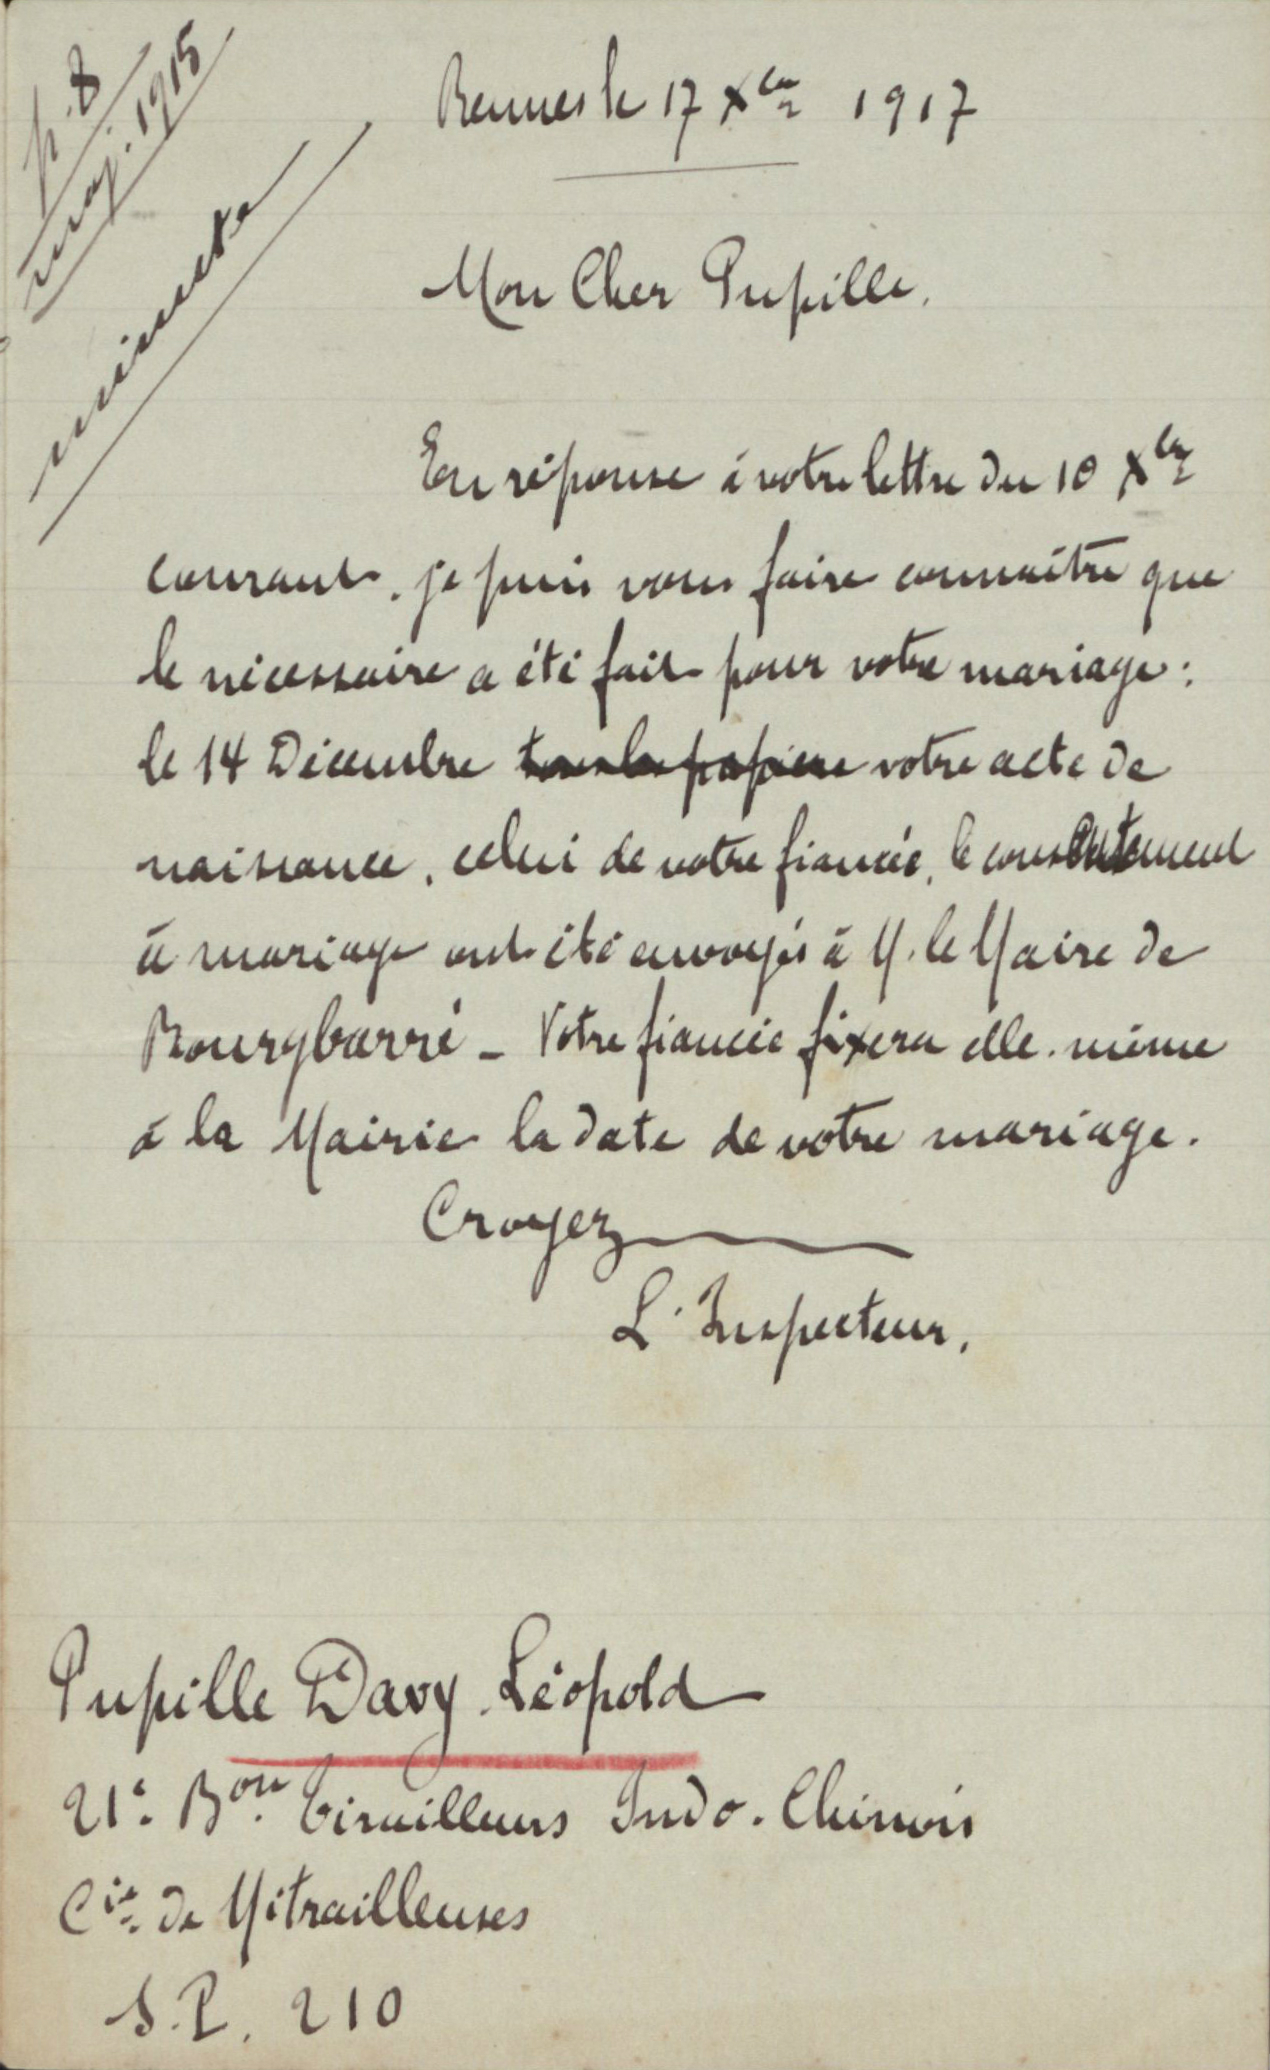 p. 8
maj. 1915
minute
Rennes le 17 Xbre 1917
Mon Cher Pupille.
En réponse à votre lettre du 10 Xbre
courant, je puis vous faire connaître que
le nécessaire a été fait pour votre mariage :
le 14 Décembre tous les papiers votre acte de
naissance, celui de votre fiancée, le consentement
à mariage ont été envoyés à M. le Maire de
Bourgbarré - Votre fiancée fixera elle-même
à la Mairie la date de votre mariage.
Croyez
L'Inspecteur,
Pupille Davy Léopold
21e Bon Tirailleurs Indo-Chinois
Cie de Mitrailleuses
S.P. 210